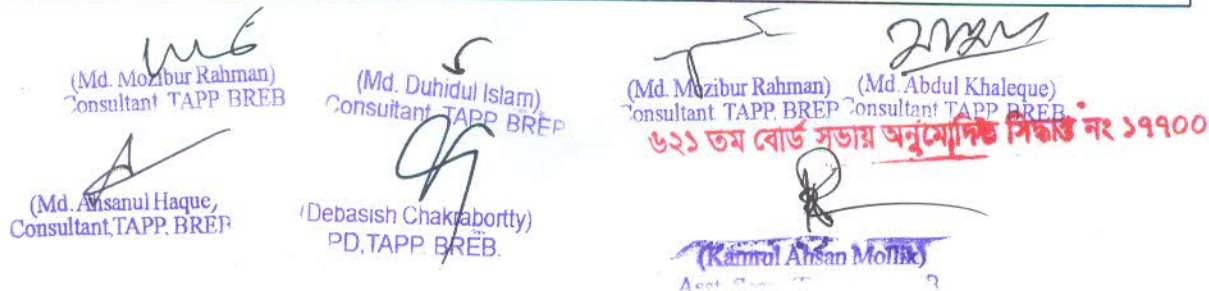 (Md. Mozibur Rahman)
Consultant TAPP BREB
(Md. Duhidul Islam)
Consultant TAPP BREB
(Md. Mozibur Rahman)
Consultant TAPP, BREP
(Md. Abdul Khaleque)
Consultant TAPP BREB
৬২১ তম বোর্ড সভায় অনুমোদিত সিদ্ধান্ত নং ১৭৭০০
(Md. Ahsanul Haque,
Consultant, TAPP, BREB
(Debasish Chakrabortty)
PD, TAPP BREB.
(Kamrul Ahsan Mollik)
Asst.